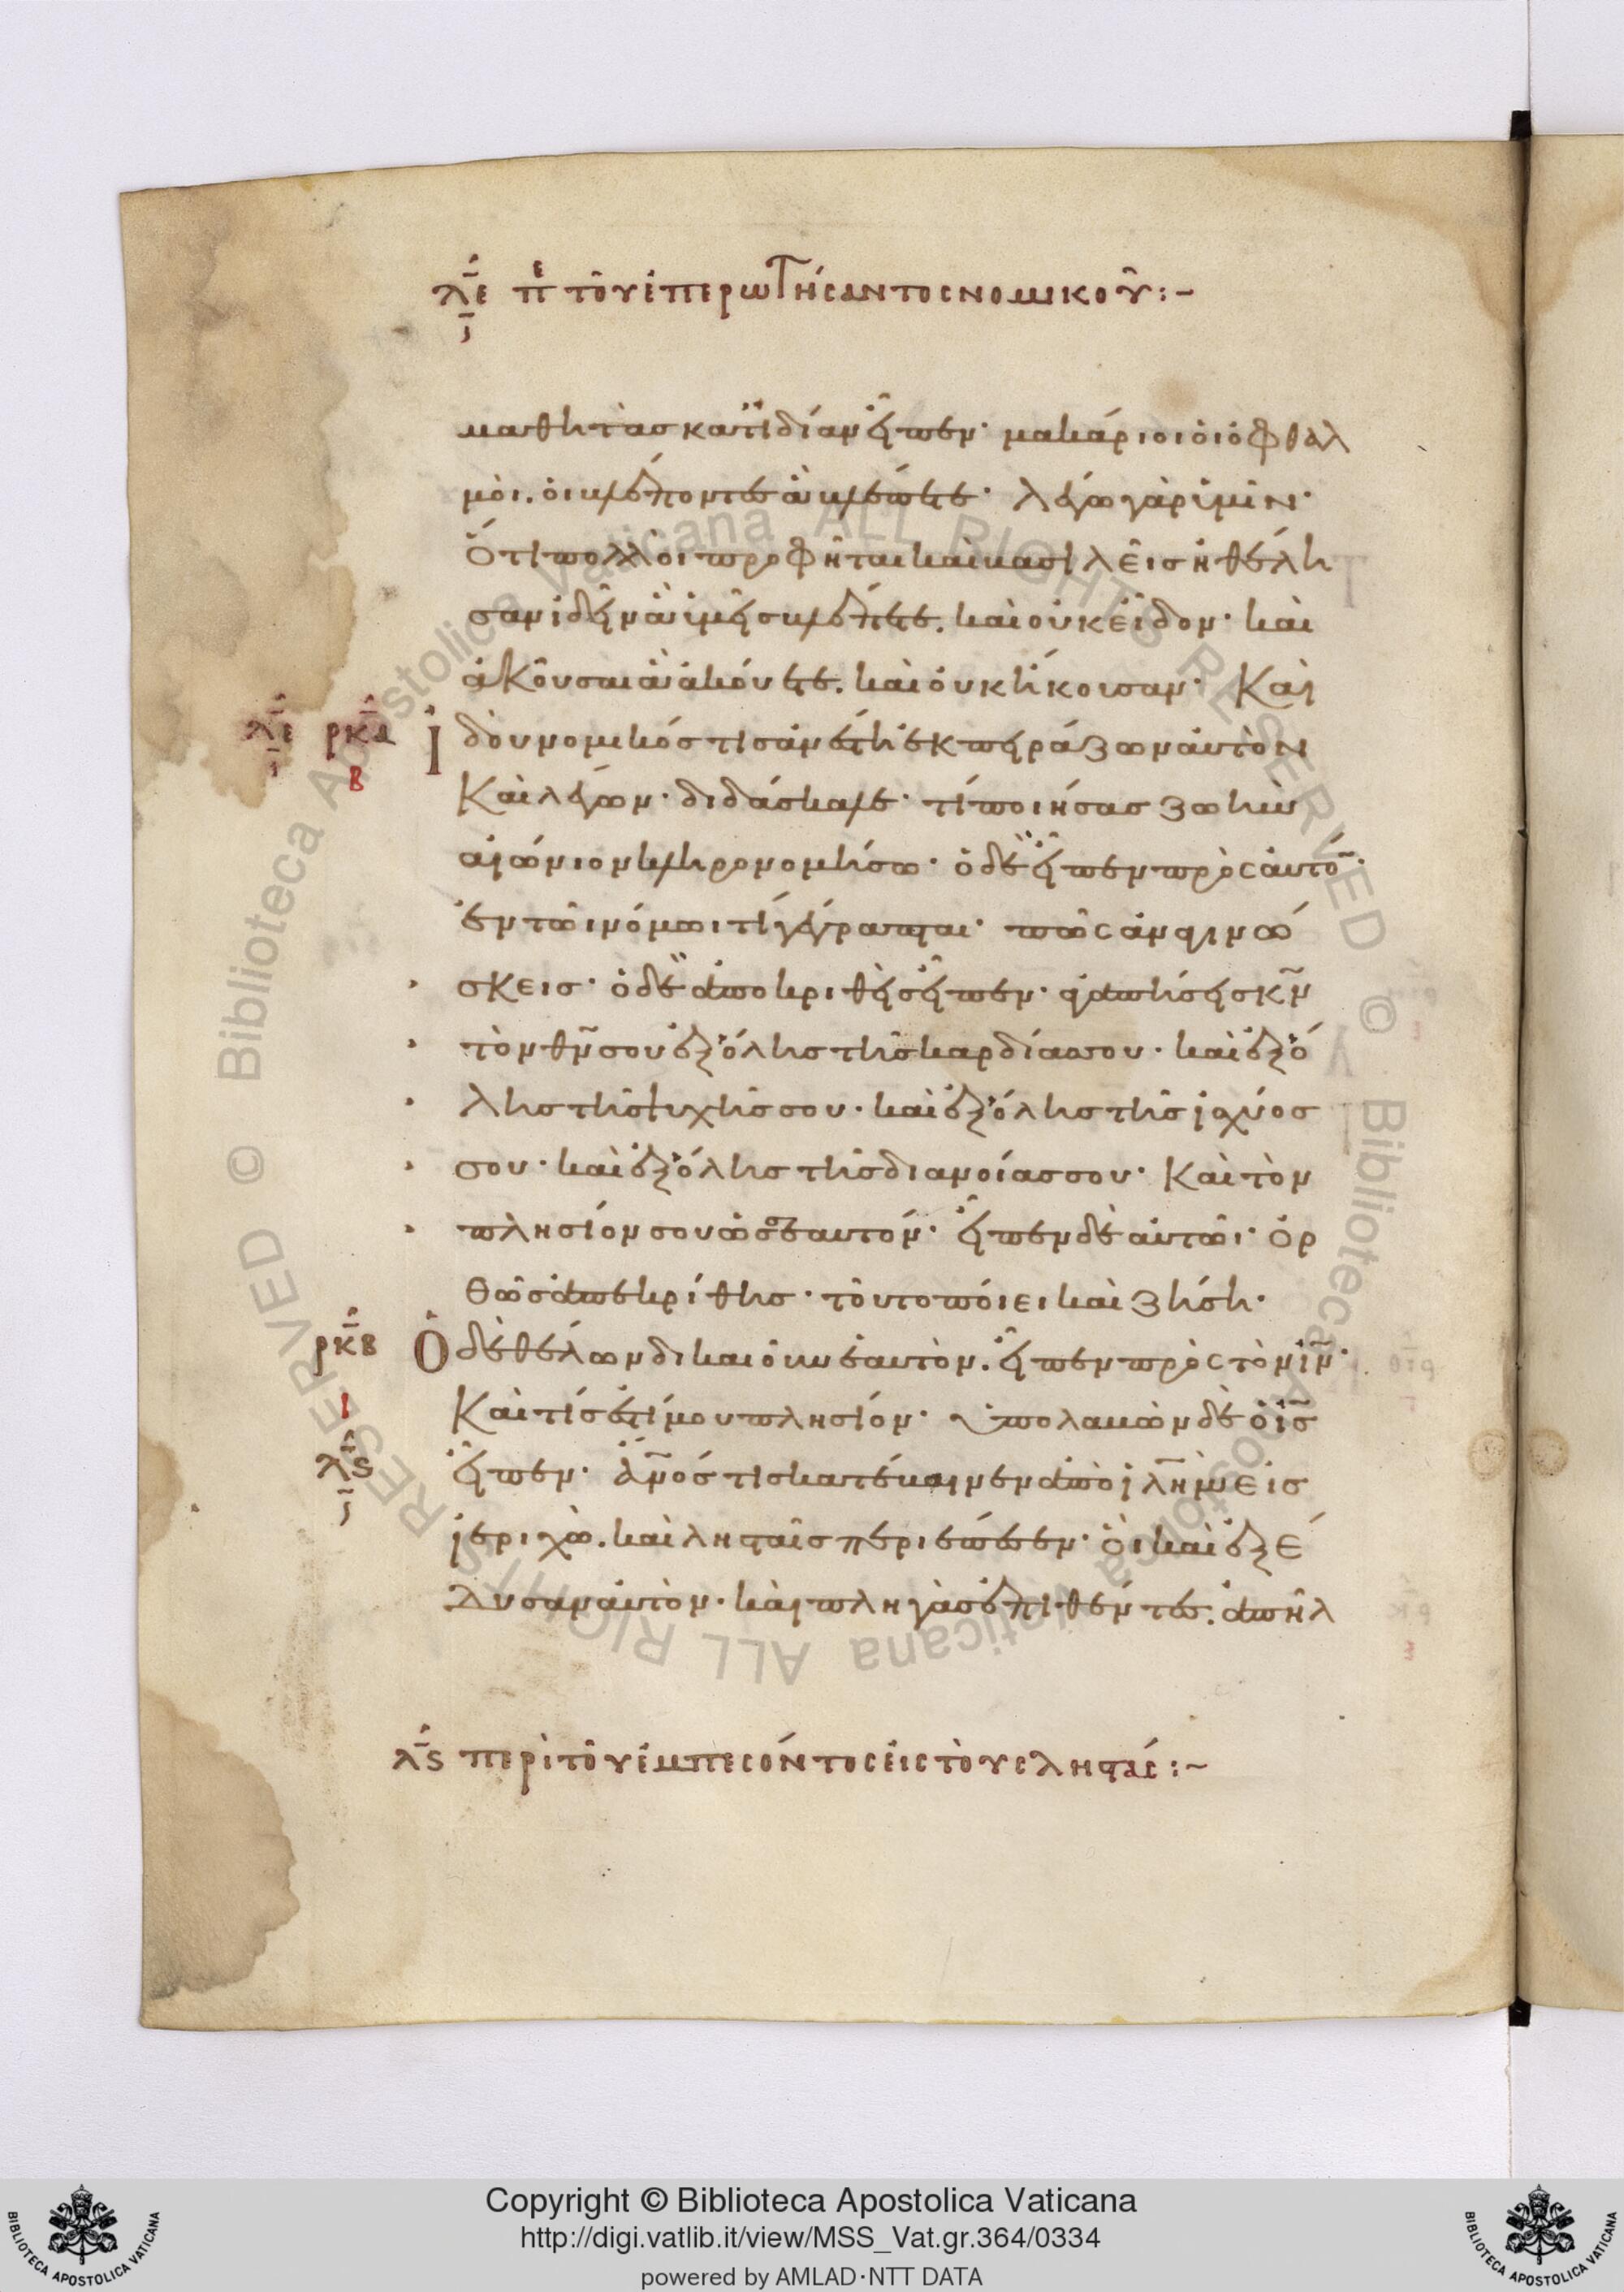 λε πε τοῦ ἐπερωτήσαντος νομικοῦ:~
μαθητὰς κατϊδίαν εἶπεν· μακάριοι οἱ ὀφθαλ
μοὶ. οἱ βλέποντες ἃ βλέπετε· λέγω γὰρ ὑμῖν·
Ὅτι πολλοὶ προφῆται καὶ βασιλεῖς ἠθέλη
σαν ἰδεῖν ἃ ὑμεῖς βλέπετε. καὶ οὐκ εἶδον· καὶ
ἀκοῦσαι ἃ ἀκούετε. καὶ οὐκ ἤκουσαν· Καὶ
λε ρκα Ἰδοὺ νομικός τις ἀνέστη ἐκπειράζων αὐτὸν
β
Καὶ λέγων· διδάσκαλε· τί ποιήσας ζωὴν
αἰώνιον κληρονομήσω· ὁ δὲ εἶπεν πρὸς αὐτό̅·
ἐν τῶι νόμωι τί γέγραπται· πῶς ἀναγινώ
σκεις· ὁ δὲ ἀποκριθεὶς εἶπεν· ἀγαπήσεις κ̅ν̅
τὸν θ̅ν̅ σου ἐξ ὅλης τῆς καρδίας σου· καὶ ἐξ ὅ
λης τῆς ψυχῆς σου· καὶ ἐξ ὅλης τῆς ἰσχύος
σου· καὶ ἐξ ὅλης τῆς διανοίας σου· Καὶ τὸν
πλησίον σου ὡς σεαυτόν· εἶπεν δὲ αὐτῶι· ὀρ
θῶς ἀπεκρίθης· τοῦτο ποίει καὶ ζήση·
ρκβ Ὁ δὲ θέλων δικαιοῦν ἑαυτὸν. εἶπεν πρὸς τὸν ι̅ν̅·
ι Καὶ τίς ἐστί μου πλησίον· Ὑπολαβὼν δὲ ὁ ι̅ς̅
λς εἶπεν· ἄ̅ν̅ο̅ς τις κατέβαινεν ἀπὸ ι̅λ̅η̅μ̅ εἰς
ἱεριχὼ. καὶ λησταῖς περιέπεσεν· οἳ καὶ ἐξέ
δυσαν αὐτὸν· καὶ πληγὰς ἐπιθέντες. ἀπῆλ
λς περὶ τοῦ ἐμπεσόντος εἰς τοὺς ληστάς:~
Biblioteca Apostolica Vaticana ALL RIGHTS RESERVED ©
Biblioteca Apostolica Vaticana ALL RIGHTS RESERVED ©
BIBLIOTECA APOSTOLICA VATICANA
Copyright © Biblioteca Apostolica Vaticana
http://digi.vatlib.it/view/MSS_Vat.gr.364/0334
powered by AMLAD·NTT DATA
BIBLIOTECA APOSTOLICA VATICANA